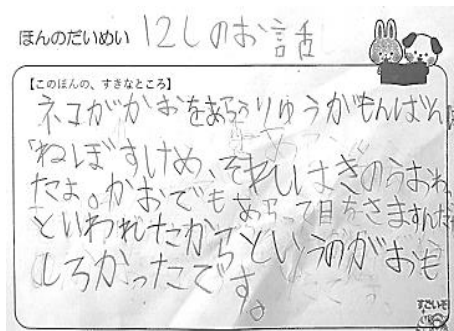 ほんのだいめい 12しのお話
【このほんの、すきなところ】
ネコがかおをあらうりゅうがもんばん
「ねぼすけめ、それはきのうおわ
たよ。かおでもあらって目をさますんだ
といわれたからというのがおも
しろかったです。
すごいぞ